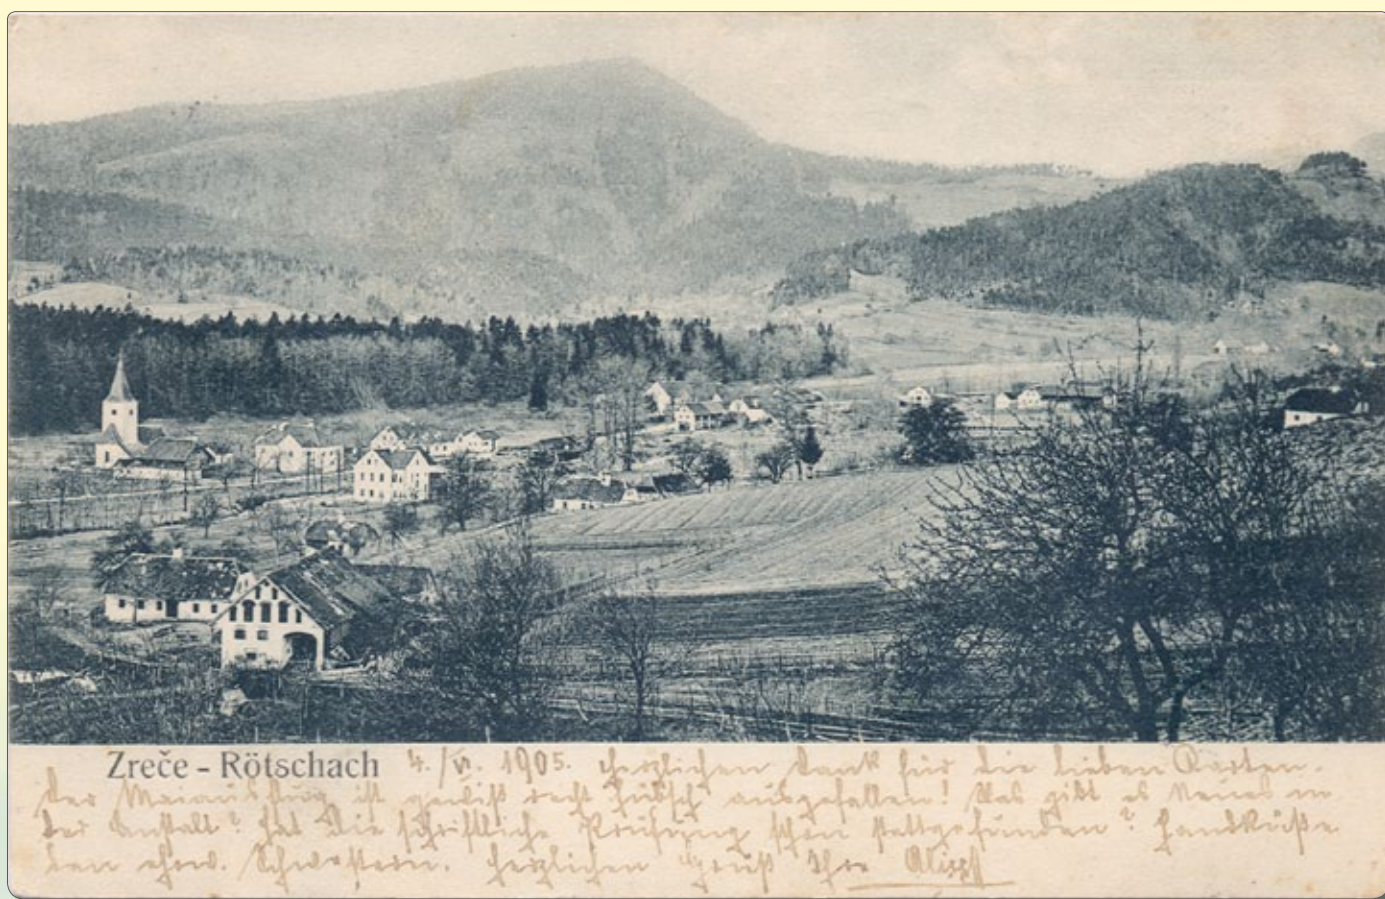 Zreče - Rötschach 4./VI. 1905. Herzlichen Dank für die lieben Karten.
Der Maiausflug ist gewiß recht hübsch ausgefallen! Was gibt es Neues in
der Anstalt? Hat die schriftliche Prüfung schon stattgefunden? Handküße
den ehrw. Schwestern. Herzlichen Gruß Ihre